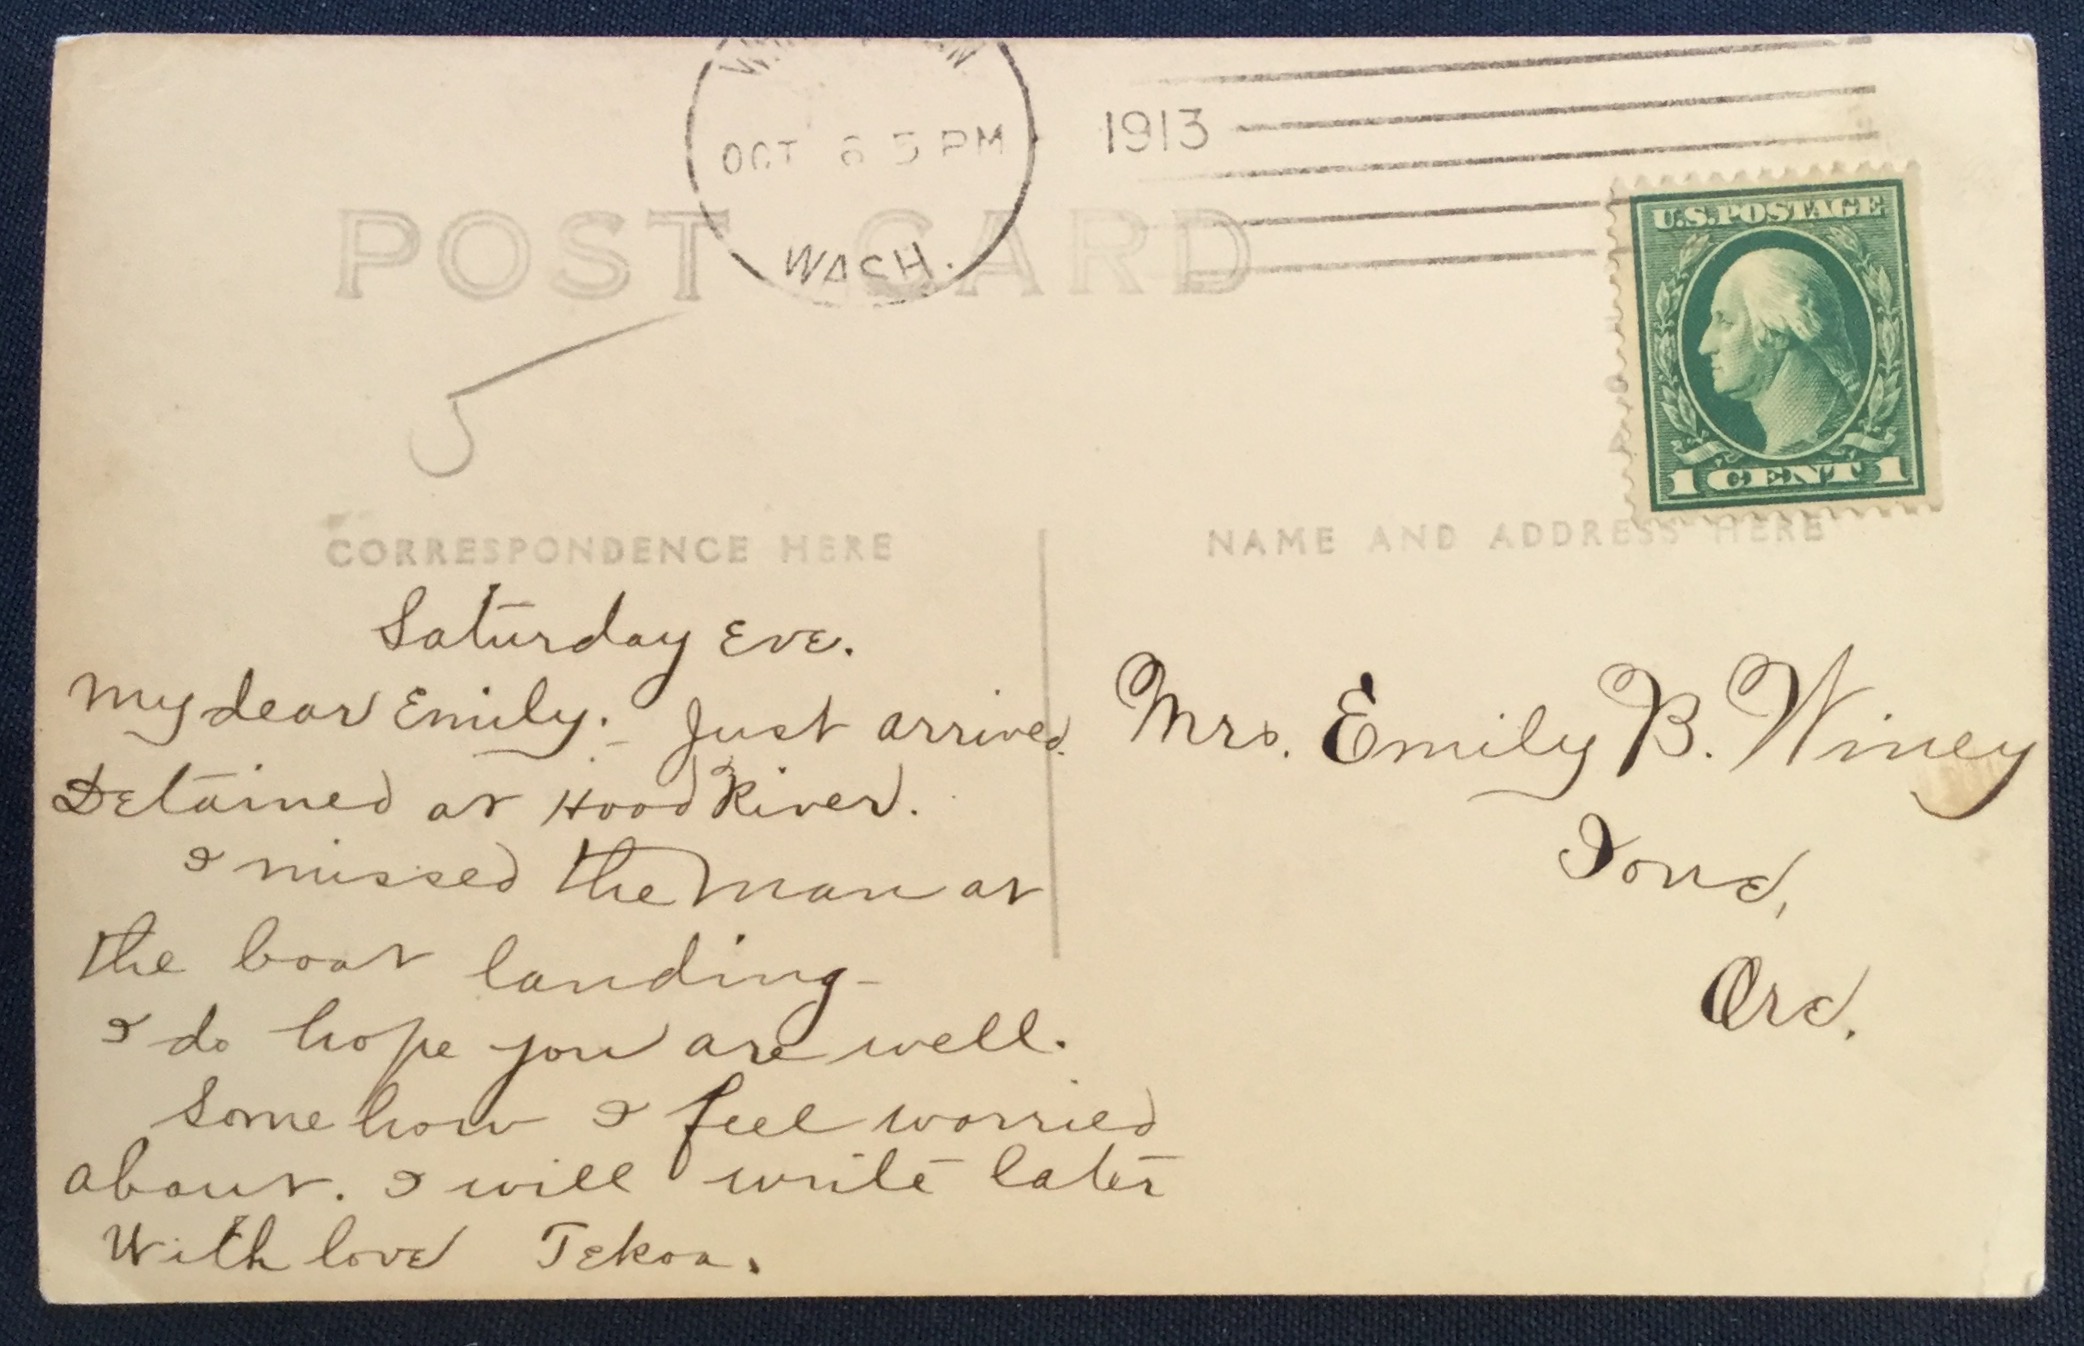 OCT 6 5 PM
1913
WASH.
POST CARD
U.S. POSTAGE
1 CENT 1
CORRESPONDENCE HERE
NAME AND ADDRESS HERE
Saturday Eve.
My dear Emily:– Just arrived.
Detained at Hood River.
I missed the man at
the boat landing–
I do hope you are well.
Somehow I feel worried
about. I will write later
With love Tekoa.
Mrs. Emily B. Winey
Ione,
Ore.